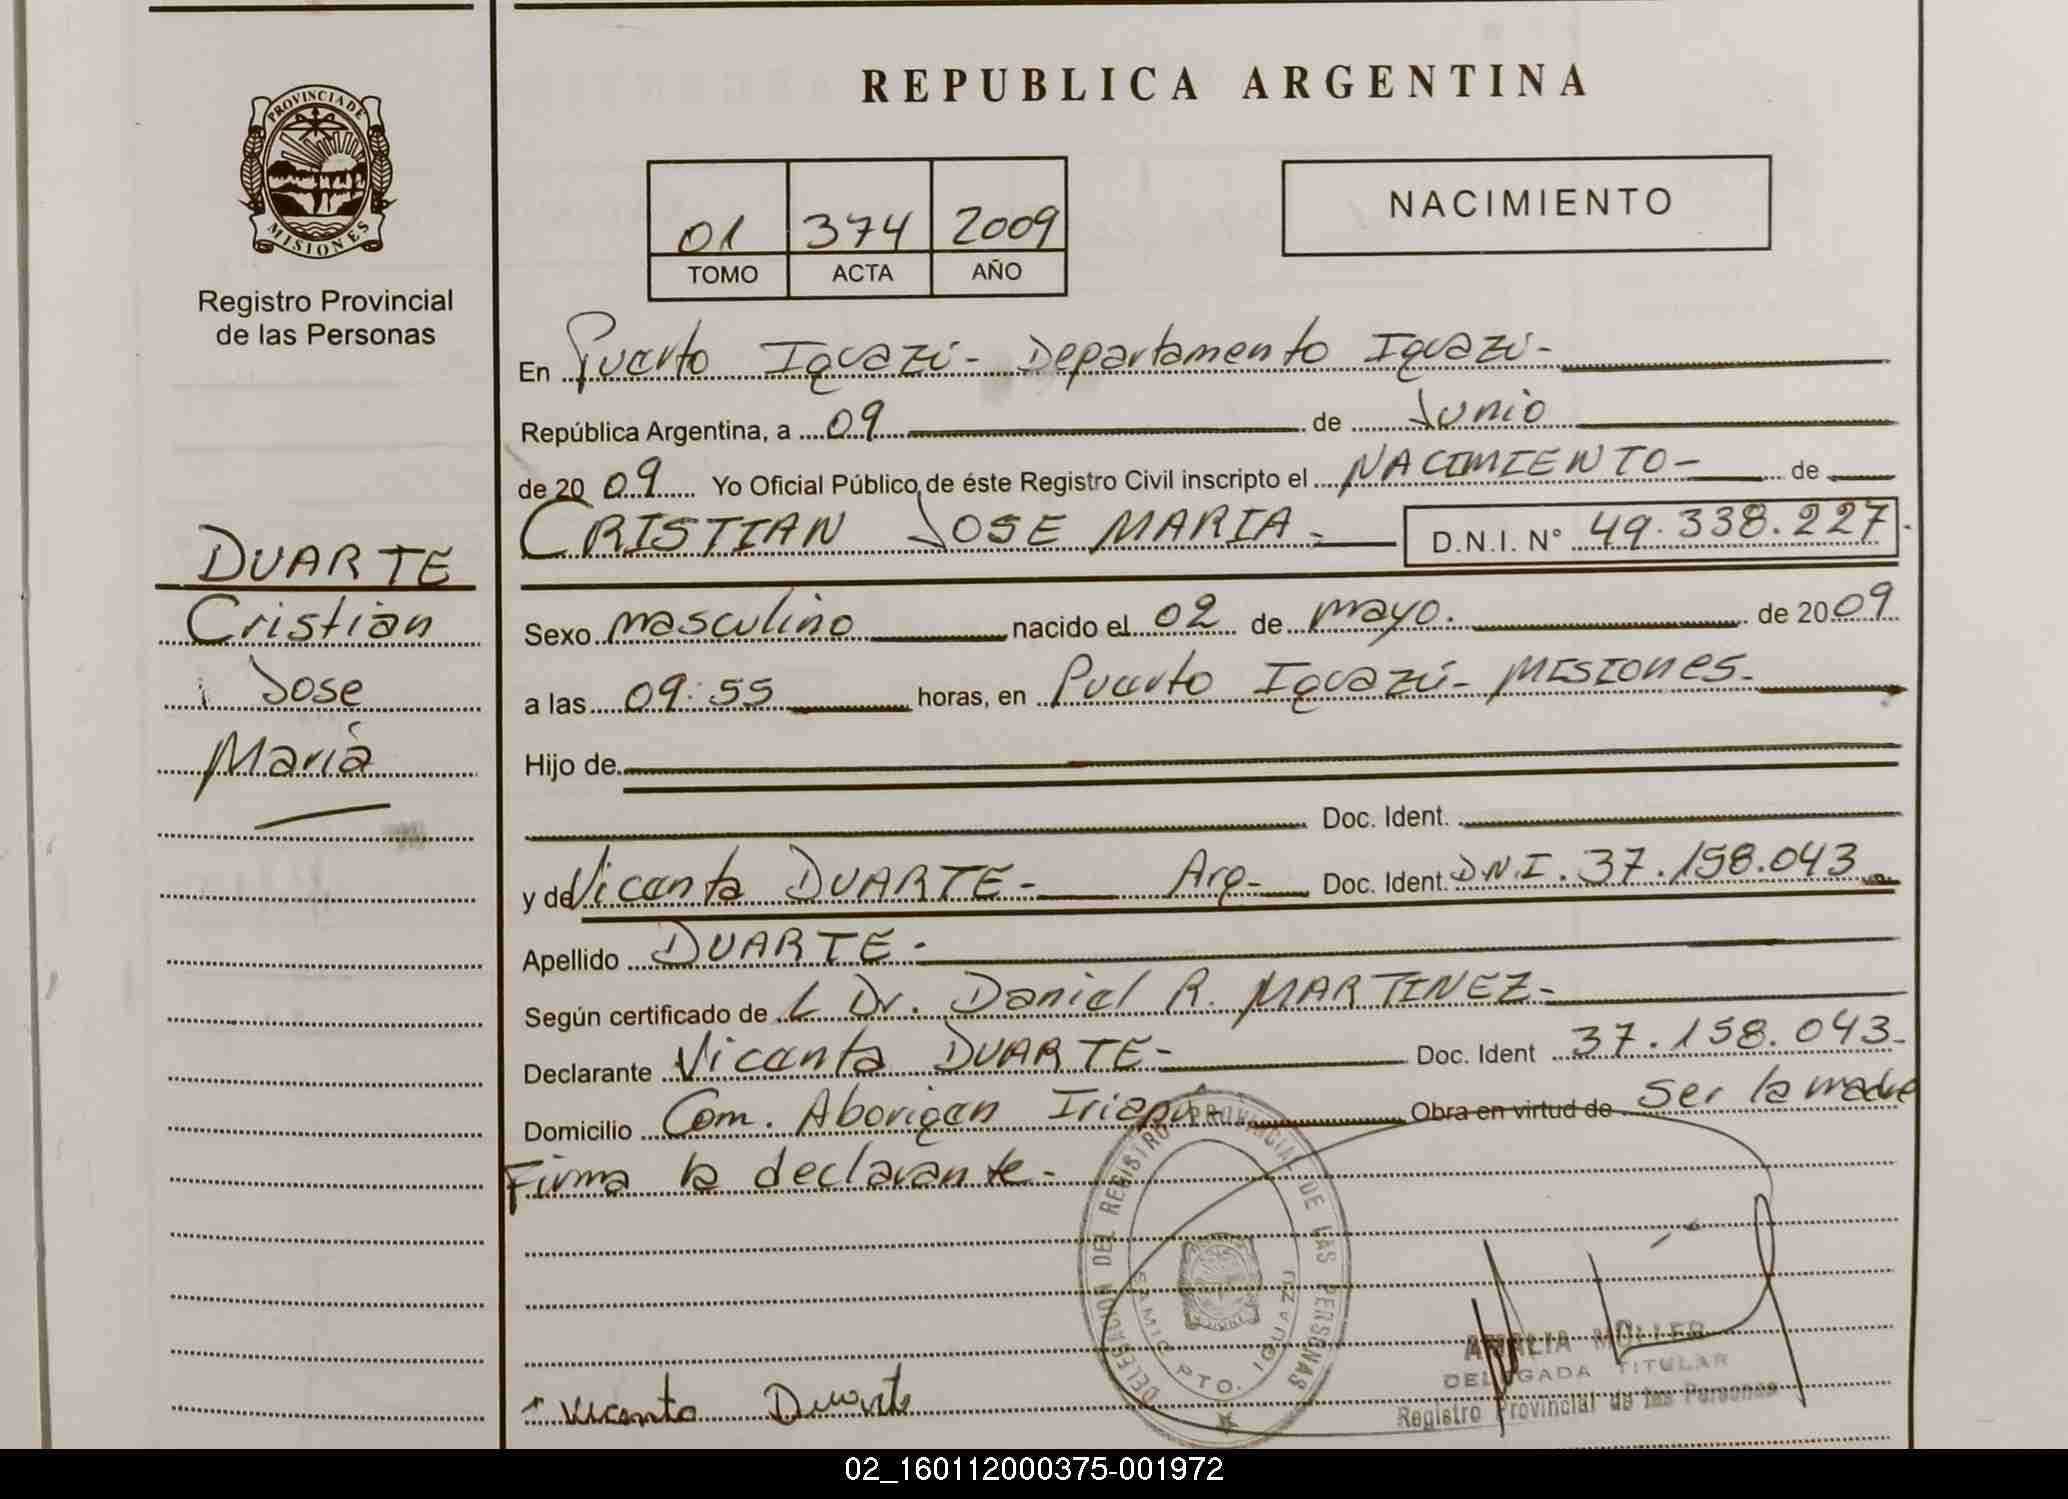 REPUBLICA ARGENTINA
PROVINCIA DE
MISIONES
Registro Provincial
de las Personas
01 374 2009
TOMO ACTA AÑO
NACIMIENTO
En Puerto Iguazú- Departamento Iguazú-
República Argentina, a 09 de Junio
de 2009 Yo Oficial Público de éste Registro Civil inscripto el NACIMIENTO- de
CRISTIAN JOSE MARIA- D.N.I. N° 49.338.227.
DUARTE
Cristian
Jose
Maria
Sexo masculino nacido el 02 de mayo. de 2009
a las 09:55 horas, en Puerto Iguazú- MISIONES-
Hijo de
Doc. Ident.
y de Vicenta DUARTE- Arg- Doc. Ident. D.N.I. 37.158.043
Apellido DUARTE-
Según certificado de L Dr. Daniel R. MARTINEZ-
Declarante Vicenta DUARTE- Doc. Ident 37.158.043-
Domicilio Com. Aborigen Iriapú- Obra en virtud de ser la madre
Firma la declarante-
DELEGACION DEL REGISTRO PROVINCIAL DE LAS PERSONAS
SAMIC PTO. IGUAZU
AMALIA MÜLLER
DELEGADA TITULAR
Registro Provincial de las Personas
Vicenta Duarte
02_160112000375-001972